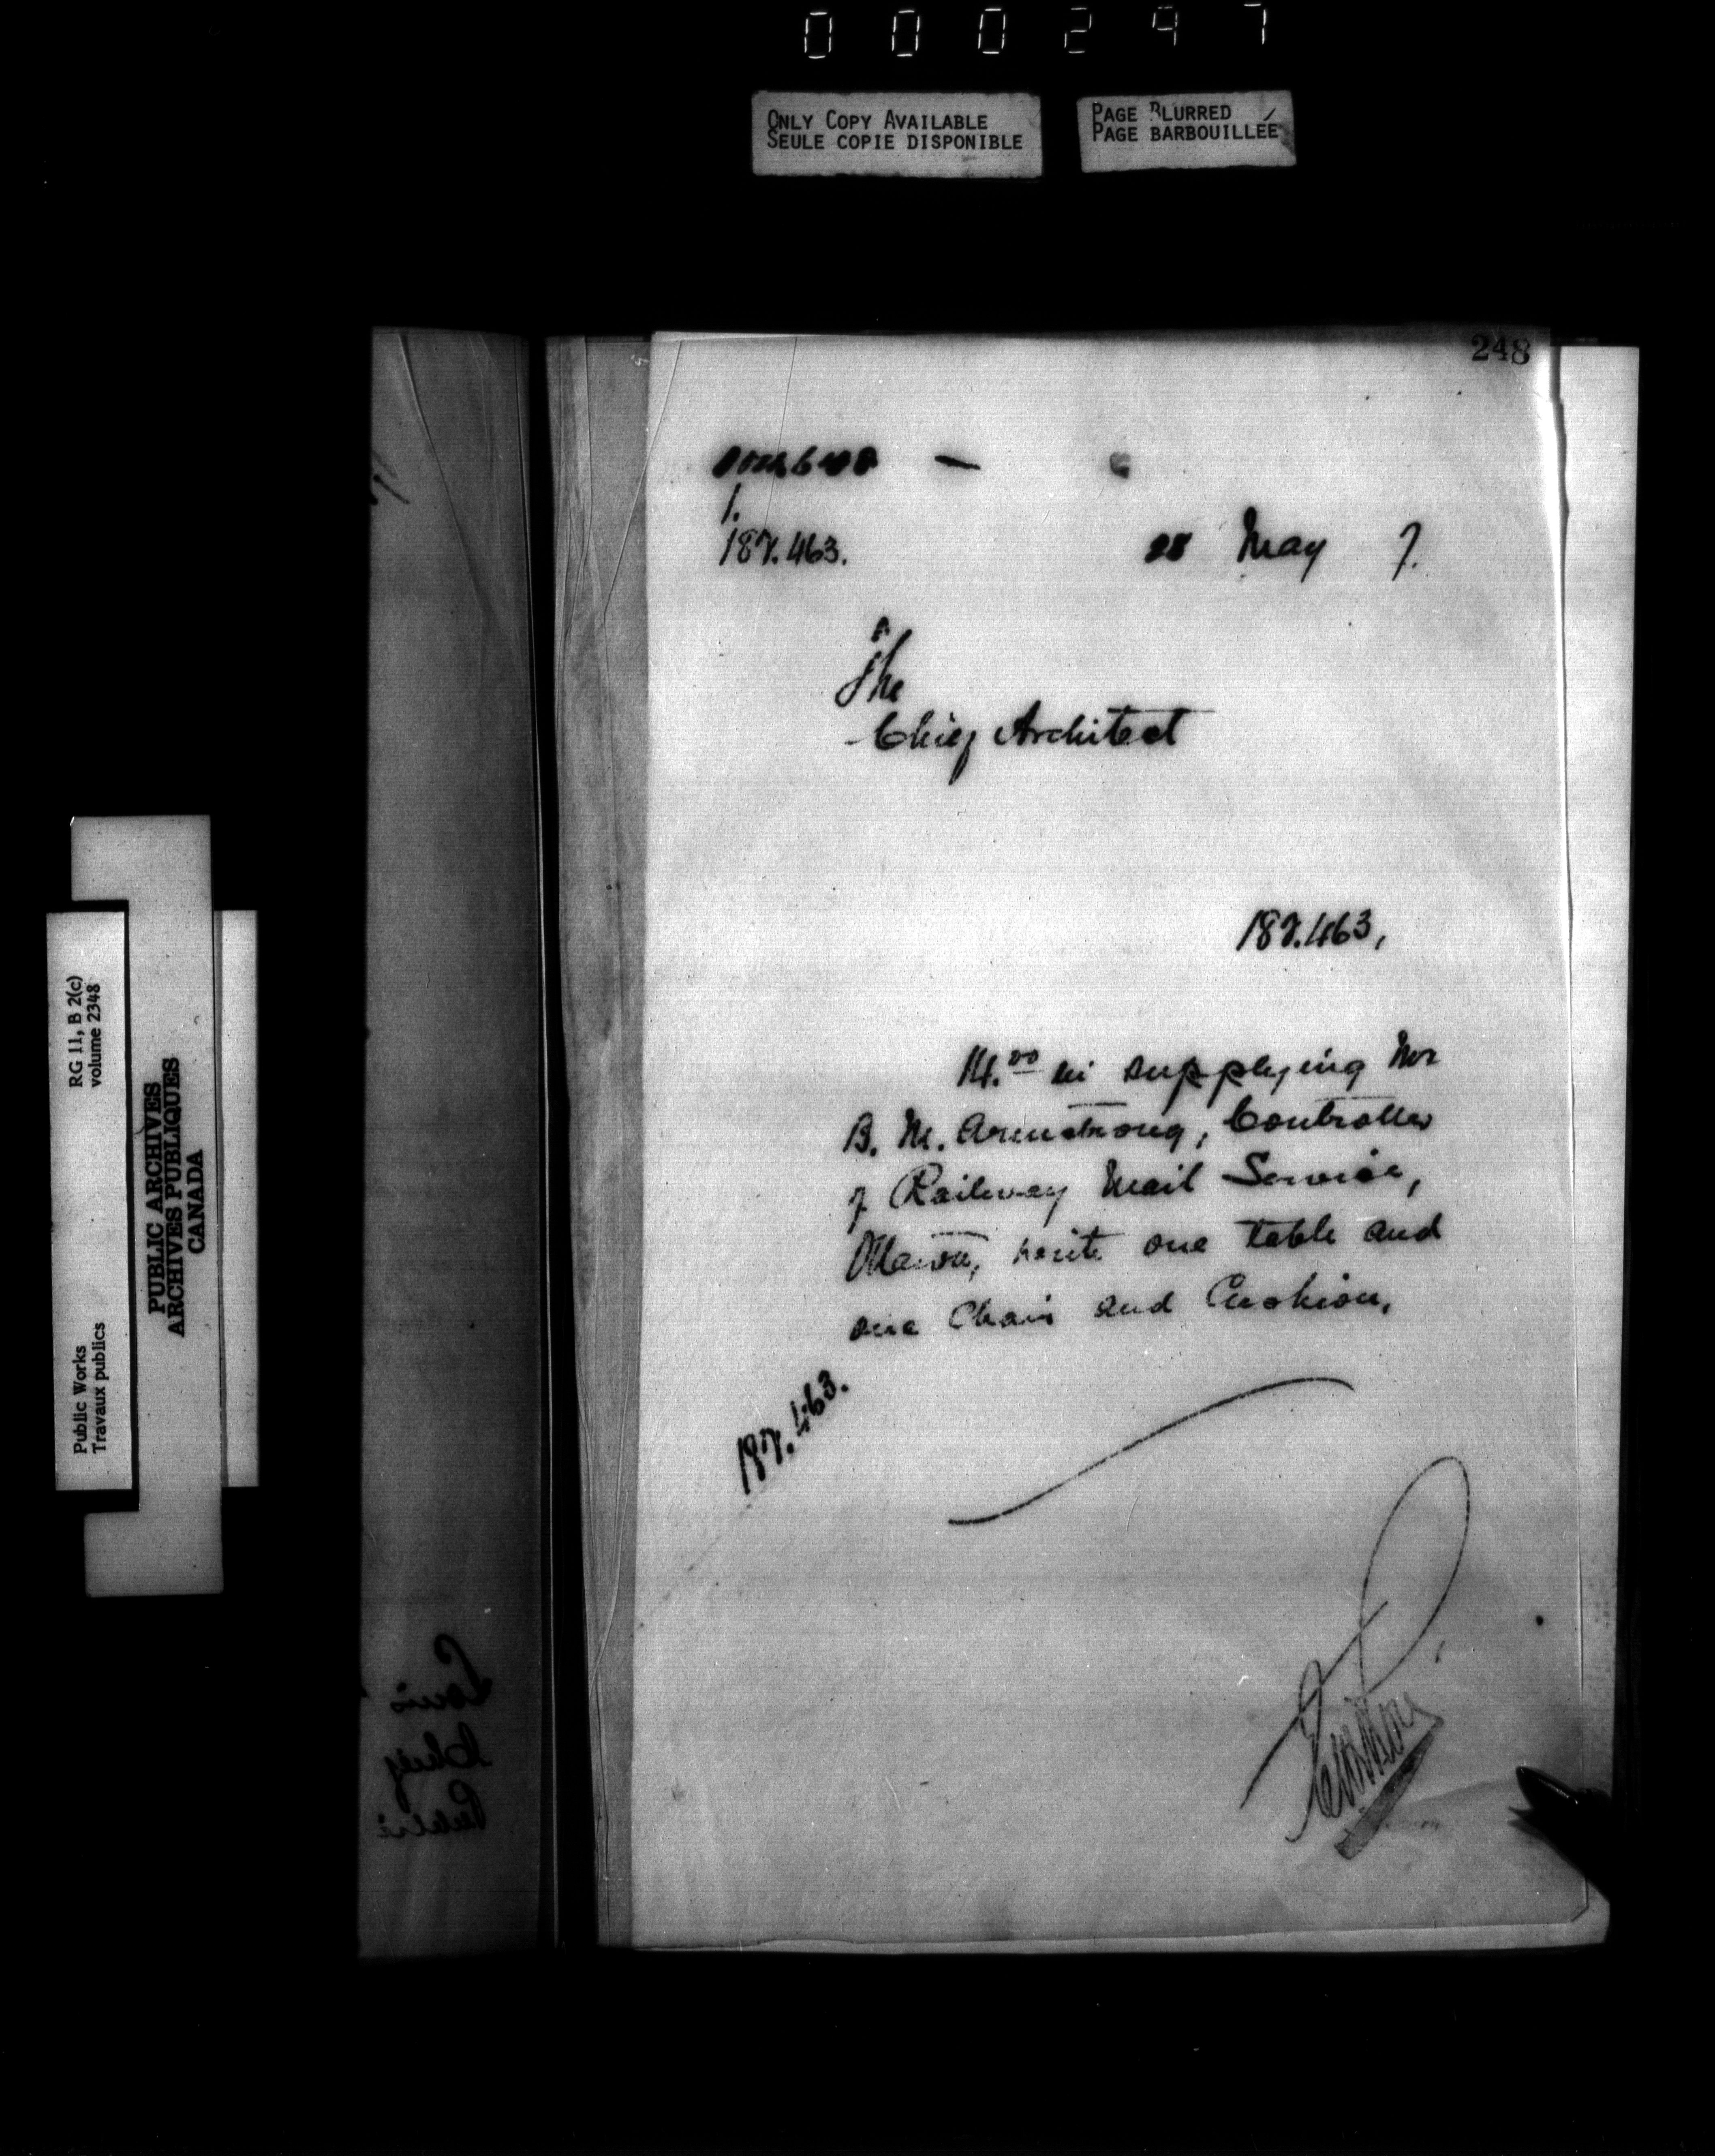 000297
ONLY COPY AVAILABLE
SEULE COPIE DISPONIBLE
PAGE BLURRED
PAGE BARBOUILLÉE
248
1.
187.463.
28 May 7.
The
Chief Architect
187.463,
14.00 in supplying Mr
B. M. Armstrong, Controller
of Railway Mail Service,
Ottawa, with one table and
one Chair and Cushion.
187.463.
RG 11, B 2(c)
volume 2348
PUBLIC ARCHIVES
ARCHIVES PUBLIQUES
CANADA
Public Works
Travaux publics
Louis
Chief
Public